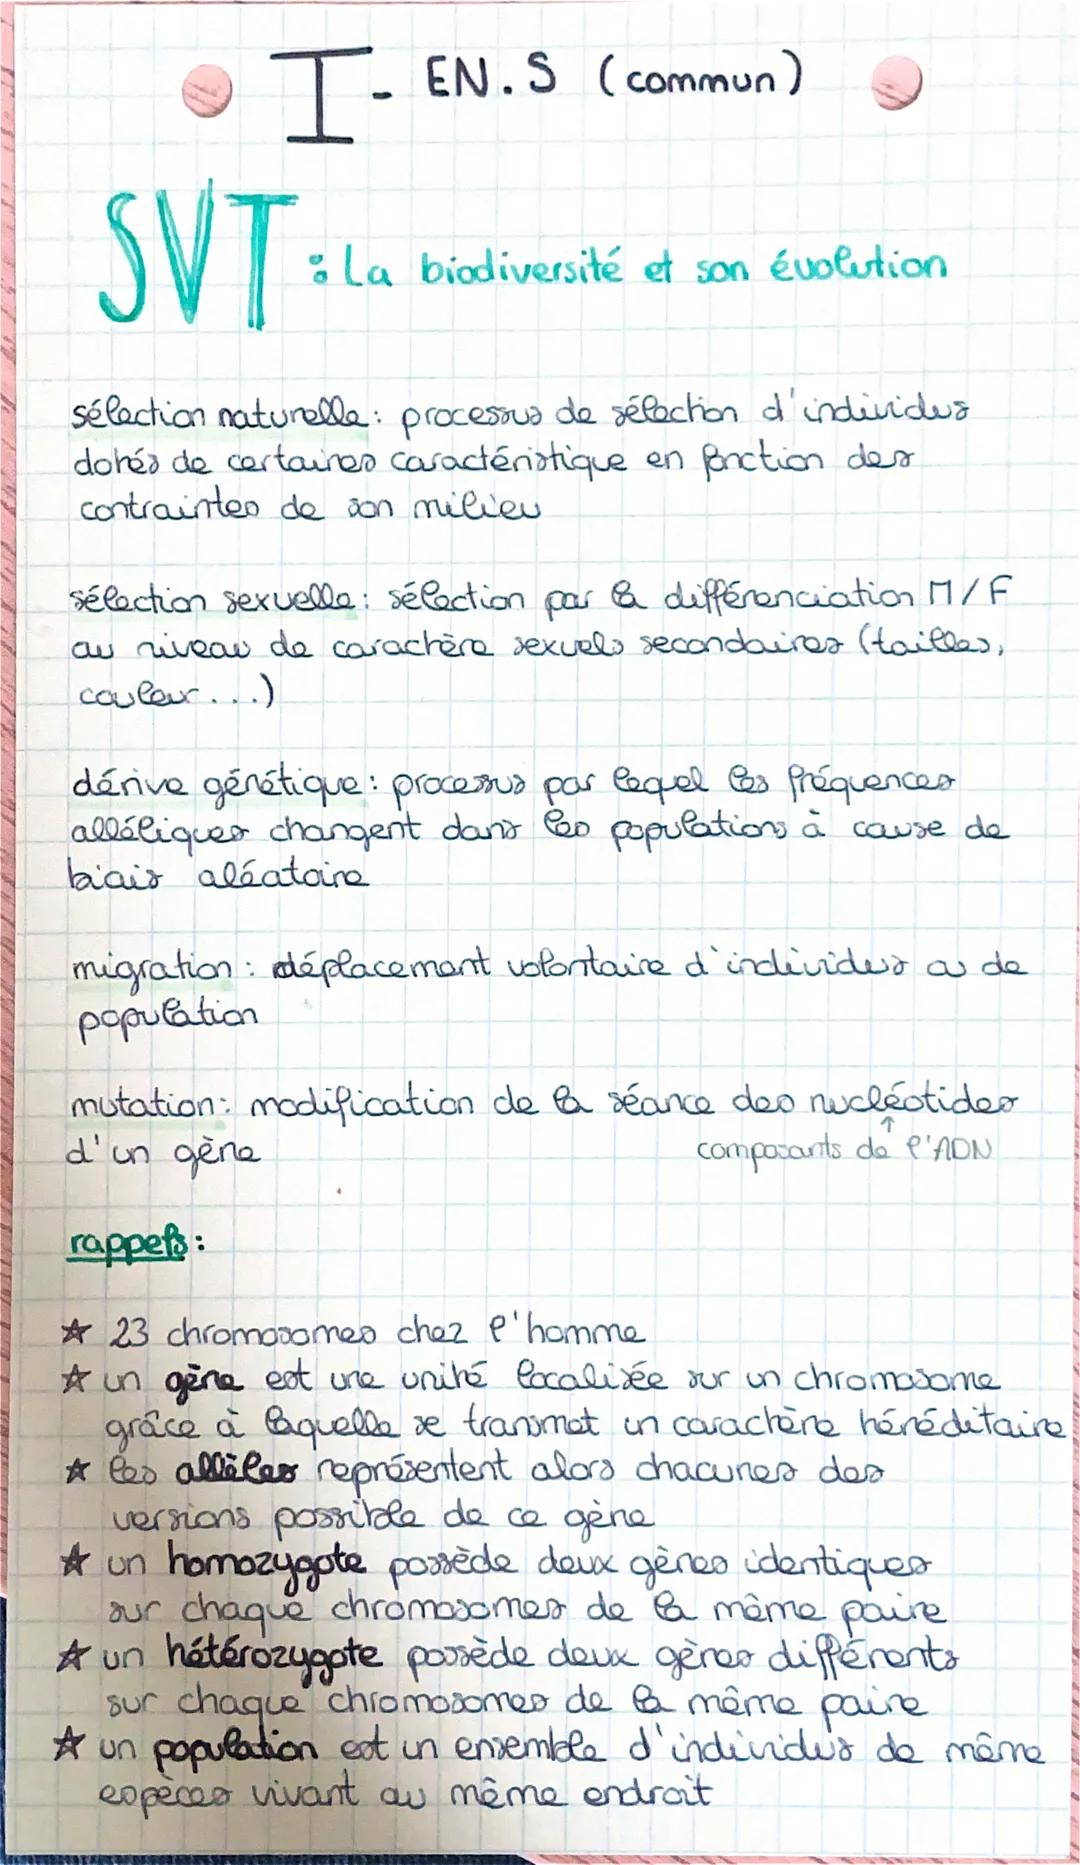 I - EN.S (commun)
SVT : La biodiversité et son évolution
sélection naturelle : processus de sélection d'individus
dotés de certaines caractéristique en fonction des
contraintes de son milieu
sélection sexuelle : sélection par la différenciation M/F
au niveau de carachère sexuels secondaires (tailles,
couleur...)
dérive génétique : processus par lequel les fréquences
alléliques changent dans les populations à cause de
biais aléatoire
migration : déplacement volontaire d'individus ou de
population
mutation : modification de la séance des nucléotides
d'un gène
↑
composants de l'ADN
rappels :
☆ 23 chromosomes chez l'homme
☆ un gène est une unité localisée sur un chromosome
grâce à laquelle se transmet un carachère héréditaire
☆ les allèles représentent alors chacunes des
versions possible de ce gène
☆ un homozygote possède deux gènes identiques
sur chaque chromosomes de la même paire
☆ un hétérozygote possède deux gènes différents
sur chaque chromosomes de la même paire
☆ un population est un ensemble d'individus de même
espèces vivant au même endroit